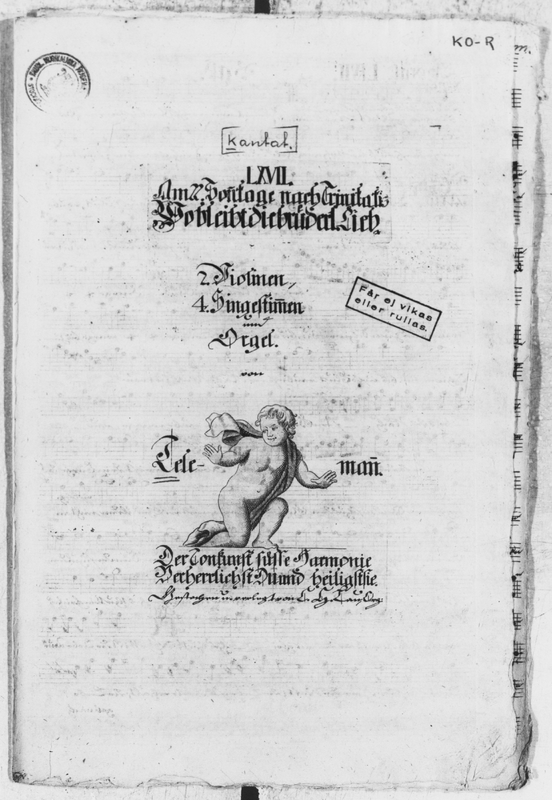 KO-R
m.
kantat.
LXVII.
Am 22. Sontage nach Trinitatis
Wo bleibt die brüderl. Lieb
2. Violinen,
4. Singestim̄en
und
Orgel.
Får ej vikas
eller rullas.
von
Tele- man̄.
Der Tonkunst süsse Harmonie
Verherrlichst Du und heiligst sie.
Gestochen u. verlegt von